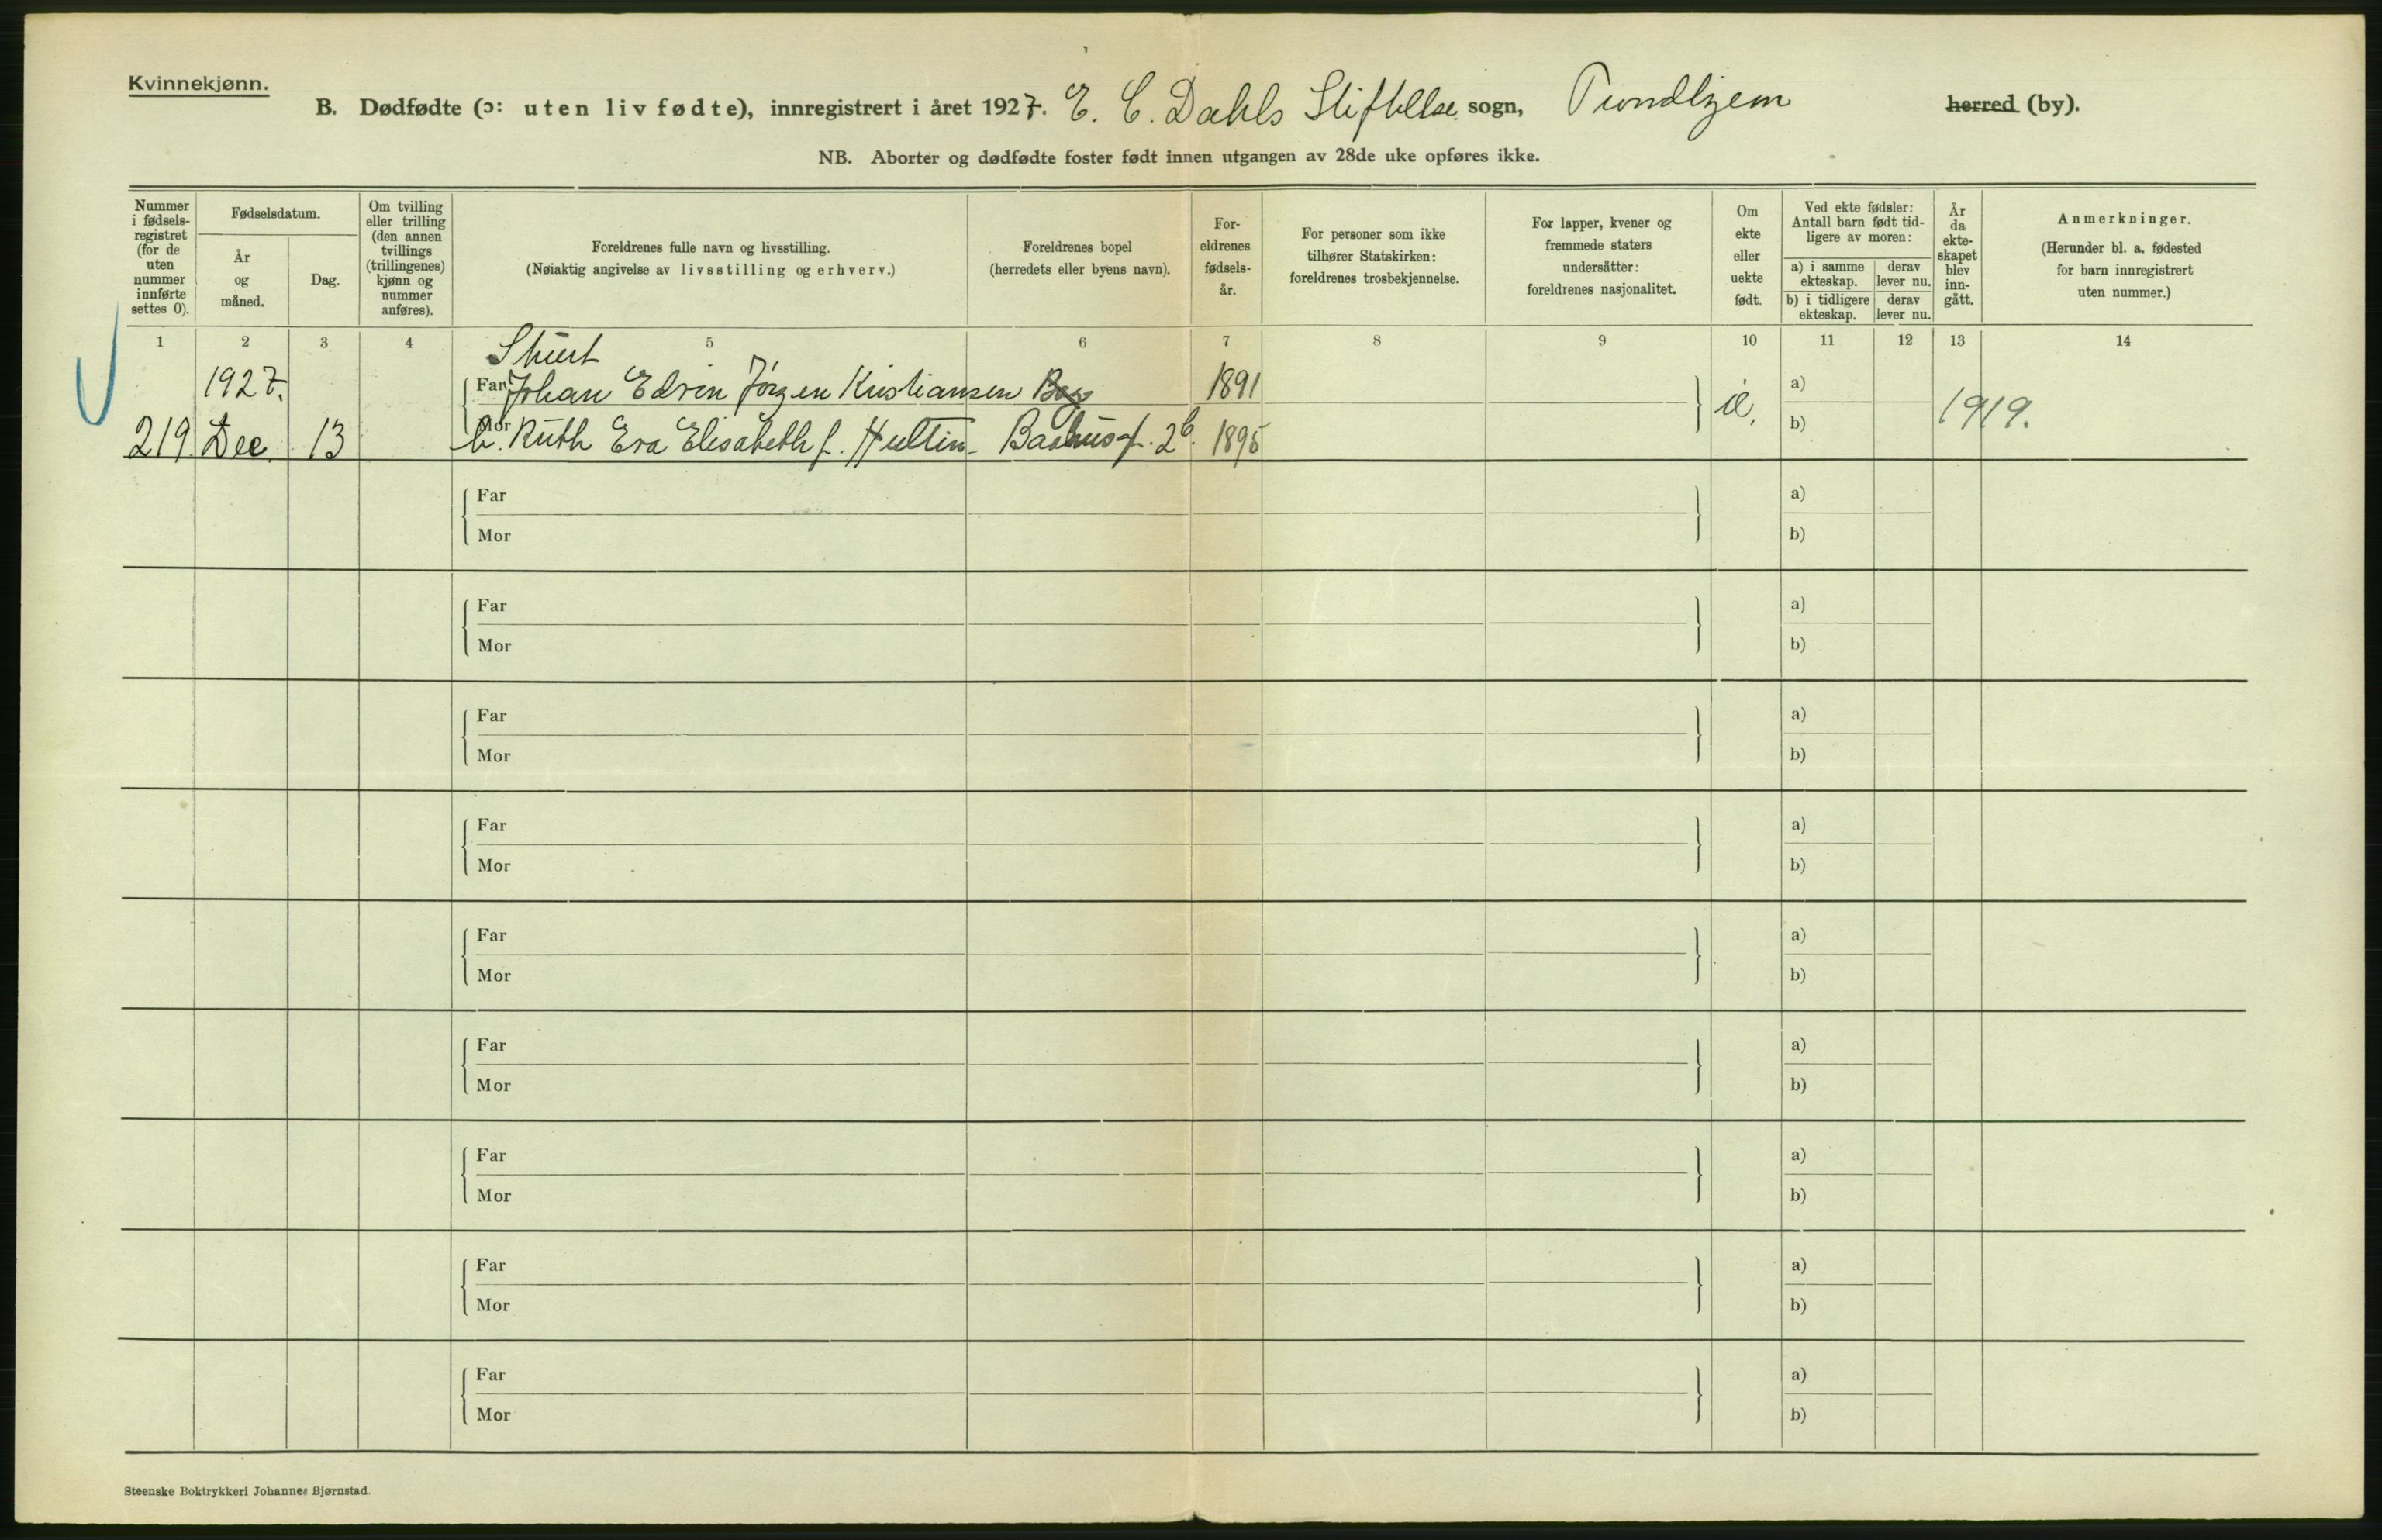 Kvinnekjønn.
B. Dødfødte (ɔ: uten liv fødte), innregistrert i året 1927. E. C. Dahls Stiftelse sogn, Trondhjem herred (by).
NB. Aborter og dødfødte foster født innen utgangen av 28de uke opføres ikke.
Nummer i fødselsregistret (for de uten nummer innførte settes 0).
Fødselsdatum.
År og måned.
Dag.
Om tvilling eller trilling (den annen tvillings (trillingenes) kjønn og nummer anføres).
Foreldrenes fulle navn og livsstilling.
(Nøiaktig angivelse av livsstilling og erhverv.)
Foreldrenes bopel
(herredets eller byens navn).
Foreldrenes fødselsår.
For personer som ikke tilhører Statskirken: foreldrenes trosbekjennelse.
For lapper, kvener og fremmede staters undersåtter: foreldrenes nasjonalitet.
Om ekte eller uekte født.
Ved ekte fødsler: Antall barn født tidligere av moren:
a) i samme ekteskap. derav lever nu.
b) i tidligere ekteskap. derav lever nu.
År da ekteskapet blev inngått.
Anmerkninger.
(Herunder bl. a. fødested for barn innregistrert uten nummer.)
1 2 3 4 5 6 7 8 9 10 11 12 13 14
1927. Far Johan Edvin Jörgen Kristiansen 1891 a)
219. Dec. 13 Mor Ruth Eva Elisabeth f. Hultin 1895 b) 1919.
Far a)
Mor b)
Far a)
Mor b)
Far a)
Mor b)
Far a)
Mor b)
Far a)
Mor b)
Far a)
Mor b)
Far a)
Mor b)
Far a)
Mor b)
Far a)
Mor b)
Steenske Boktrykkeri Johannes Bjørnstad.